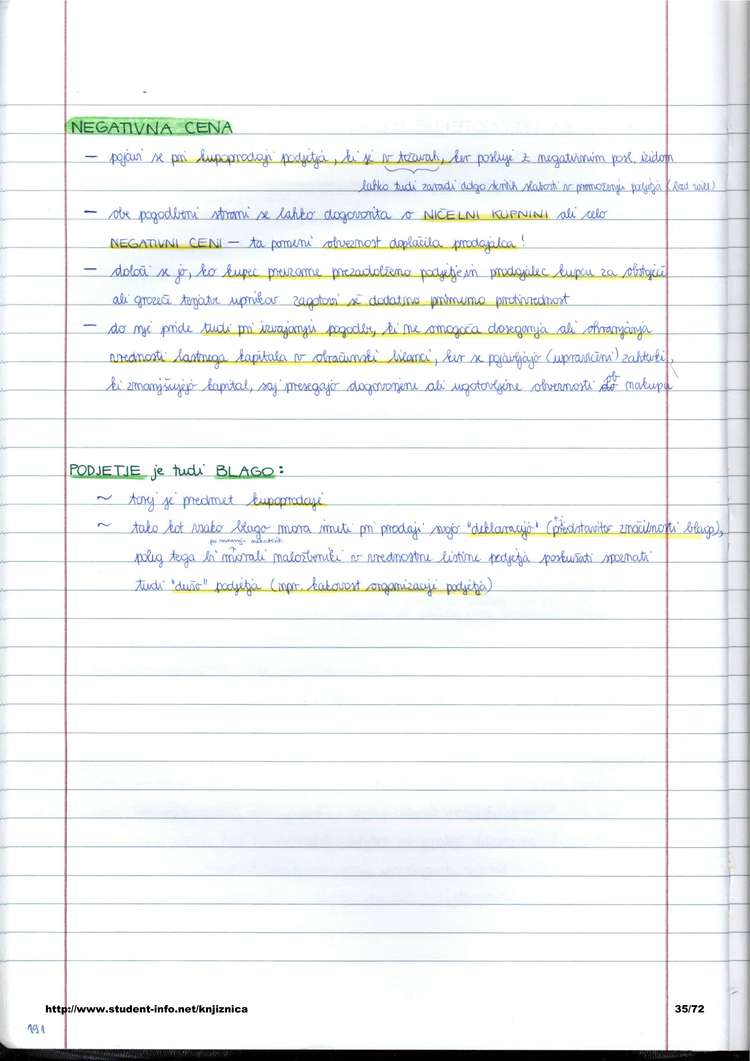 NEGATIVNA CENA
— pojavi se pri kupoprodaji podjetja, ki je v težavah, ker posluje z negativnim posl. izidom
lahko tudi zaradi dolgo skritih slabosti v premoženju podjetja (bad will)
— obe pogodbeni strani se lahko dogovorita o NIČELNI KUPNINI ali celo
NEGATIVNI CENI — ta pomeni obveznost doplačila prodajalca!
— določi se jo, ko kupec prevzame prezadolženo podjetje in prodajalec kupcu za obstoječe
ali grozeče terjatve upnikov zagotovi še dodatno primerno protivrednost
— do nje pride tudi pri izvajanju pogodbe, ki ne omogoča doseganja ali ohranjanja
vrednosti lastnega kapitala v obračunski bilanci, ker se pojavljajo (upravičeni) zahtevki,
ki zmanjšujejo kapital, saj presegajo dogovorjene ali ugotovljene obveznosti ob nakupu
PODJETJE je tudi BLAGO:
~ torej je predmet kupoprodaje
~ tako kot vsako blago mora imeti pri prodaji svojo "deklaracijo" (predstavitev značilnosti blaga),
poleg tega bi morali naložbeniki v vrednostne listine podjetja poskušati spoznati
tudi "dušo" podjetja (npr. kakovost organizacije podjetja)
http://www.student-info.net/knjiznica
35/72
191